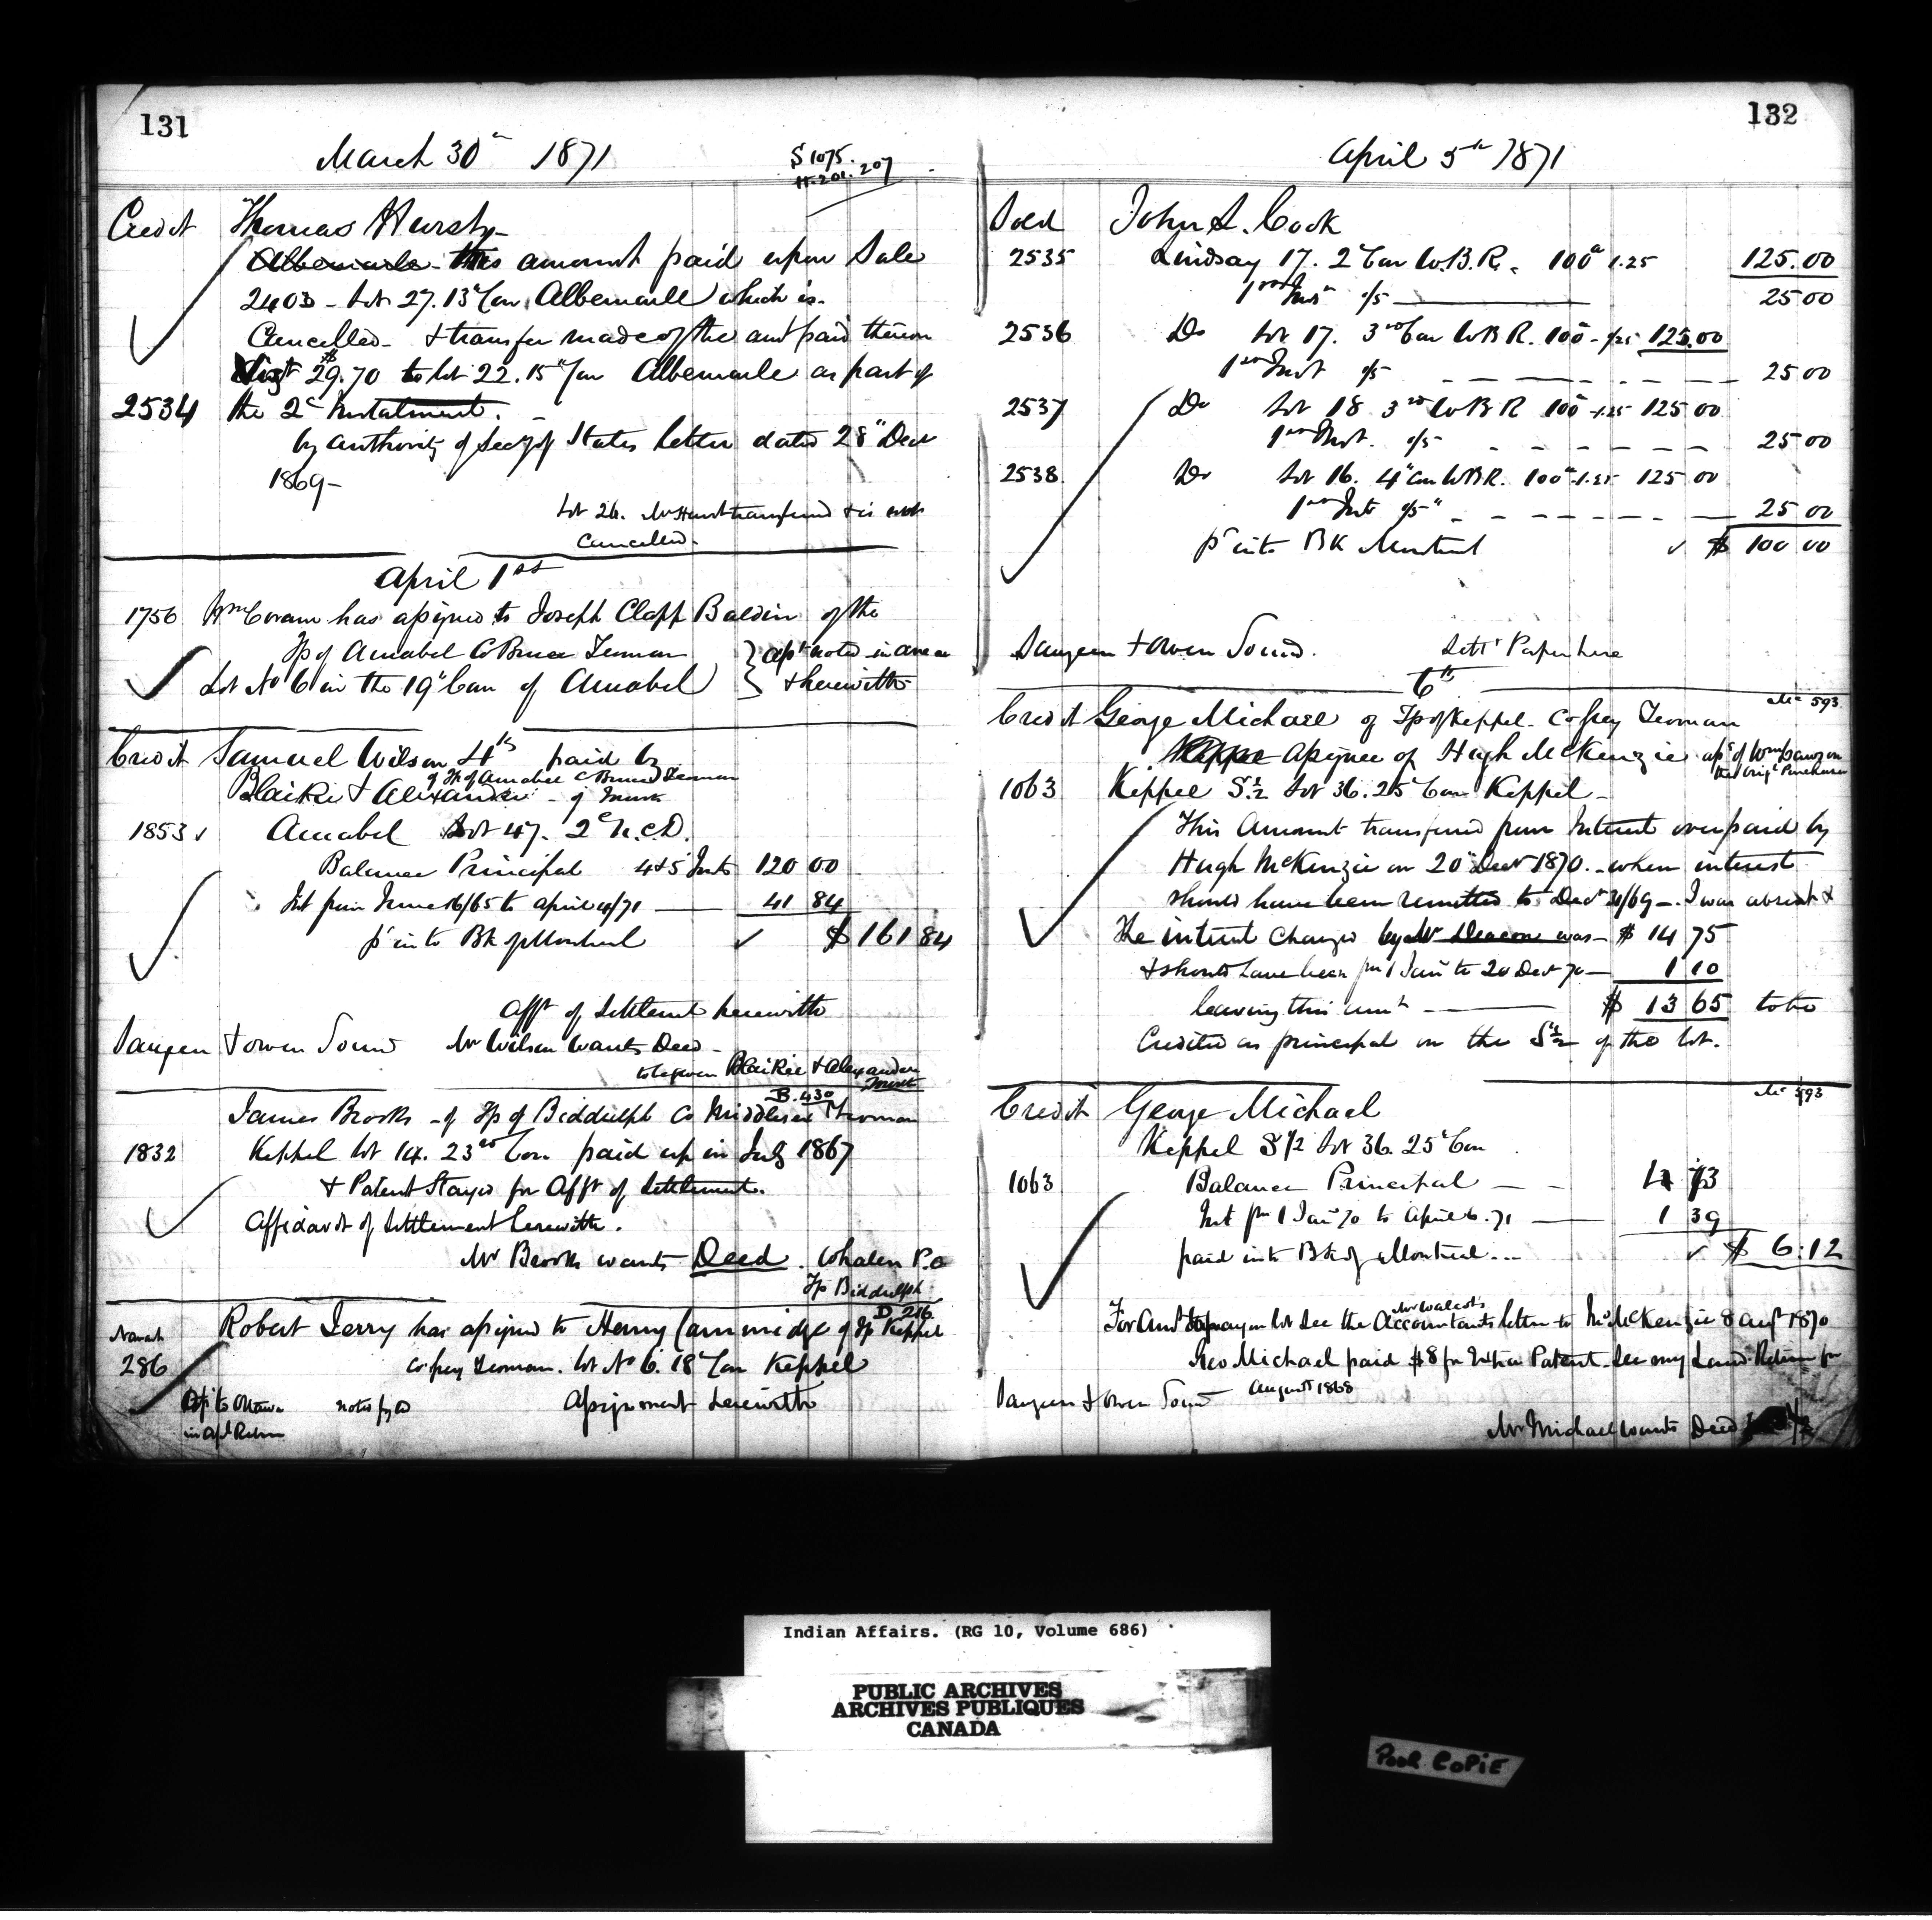 131
March 30th 1871
S 1075.
H. 201. 207
Credit Thomas Hurst
Albemarle this amount paid upon Sale
2403 - Lot 27. 13 Con Albemarle which is
Cancelled - & transfer made of the amt paid thereon
$29.70 to lot 22. 15" Con Albemarle as part of
2534 the 2d Instalment.
by authority of Secy of States letter dated 28" Decr
1869 -
Lot 26. Mr Hurst transferred & is not
Cancelled -
April 1st
1756 Wm Coram has assigned to Joseph Clapp Baldin of the
Tp of Amabel Co Bruce Yeoman
Lot No 6 in the 19" Con of Amabel
asst noted in
& herewith
Credit Samuel Wilson paid by
of Tp of Amabel C Bruce Yeoman
Blaikie & Alexander - of Toronto
1853 Amabel Lot 47. 2d N.C.D.
Balance Principal 4&5 Insts 120 00
Int from June 16/65 to april 4/71 41 84
pd into Bk of Montreal $161 84
Afft of Settlement herewith
Saugeen & Owen Sound Mr Wilson wants Deed -
to be given Blaikie & Alexander
B. 430
James Brooks - of Tp of Biddulph Co Middlesex Yeoman
1832 Keppel lot 14. 23rd Con. paid up in July 1867
& Patent Stayed for Afft of Settlement.
Affidavit of Settlement herewith.
Mr Brooks wants Deed. Whalen P.O
Tp Biddulph
D 216
Robert Terry has assigned to Henry Cammidge of Tp Keppel
286 Co Grey Yeoman. lot No 6. 18" Con Keppel
to Ottawa
in Return
Assignment herewith
132
April 5th 1871
Sold John S. Cook
2535 Lindsay 17. 2d Con W.B.R. 100a 1.25 125.00
1st Inst 1/5 25 00
2536 Do Lot 17. 3rd Con W B R. 100 - 1.25 125.00
1st Inst 1/5 25 00
2537 Do Lot 18 3rd W B R 100 - 1.25 125 00
1st Inst. 1/5 25 00
2538 Do Lot 16. 4" Con W B R. 100a - 1.25 125 00
1st Inst 1/5 25 00
pd into BK Montreal $ 100 00
Saugeen & Owen Sound. Settt Paper here
6th
Mc 593
Credit George Michael of Tp of Keppel - Co Grey Yeoman
assignee of Hugh McKenzie assee of Wm Dawson
the origl Purchaser
1063 Keppel S ½ Lot 36. 25 Con Keppel -
This Amount transferred from Interest overpaid by
Hugh McKenzie on 20" Decr 1870. - when interest
should have been remitted to Decr 31/69 -. I was absent &
The interest charged by Mr Deacon was - $ 14 75
& should have been fm 1 Jany to 20 Decr 70 - 1 10
leaving this amt $ 13 65 to be
Credited as principal on the S ½ of the lot.
Mc 593
Credit George Michael
Keppel S ½ Lot 36. 25" Con
1063 Balance Principal 4 73
Int fm 1 Jany 70 to April 6. 71 1 39
paid into Bk of Montreal $ 6.12
Mr Walcots
For Amt to pay on lot See the Accountants letter to Mr McKenzie 8 augt 1870
Geo Michael paid $8 for Patent - See my Land Return for
August 1868
Saugeen & Owen Sound
Mr Michael wants Deed
Indian Affairs. (RG 10, Volume 686)
PUBLIC ARCHIVES
ARCHIVES PUBLIQUES
CANADA
POOR COPIE